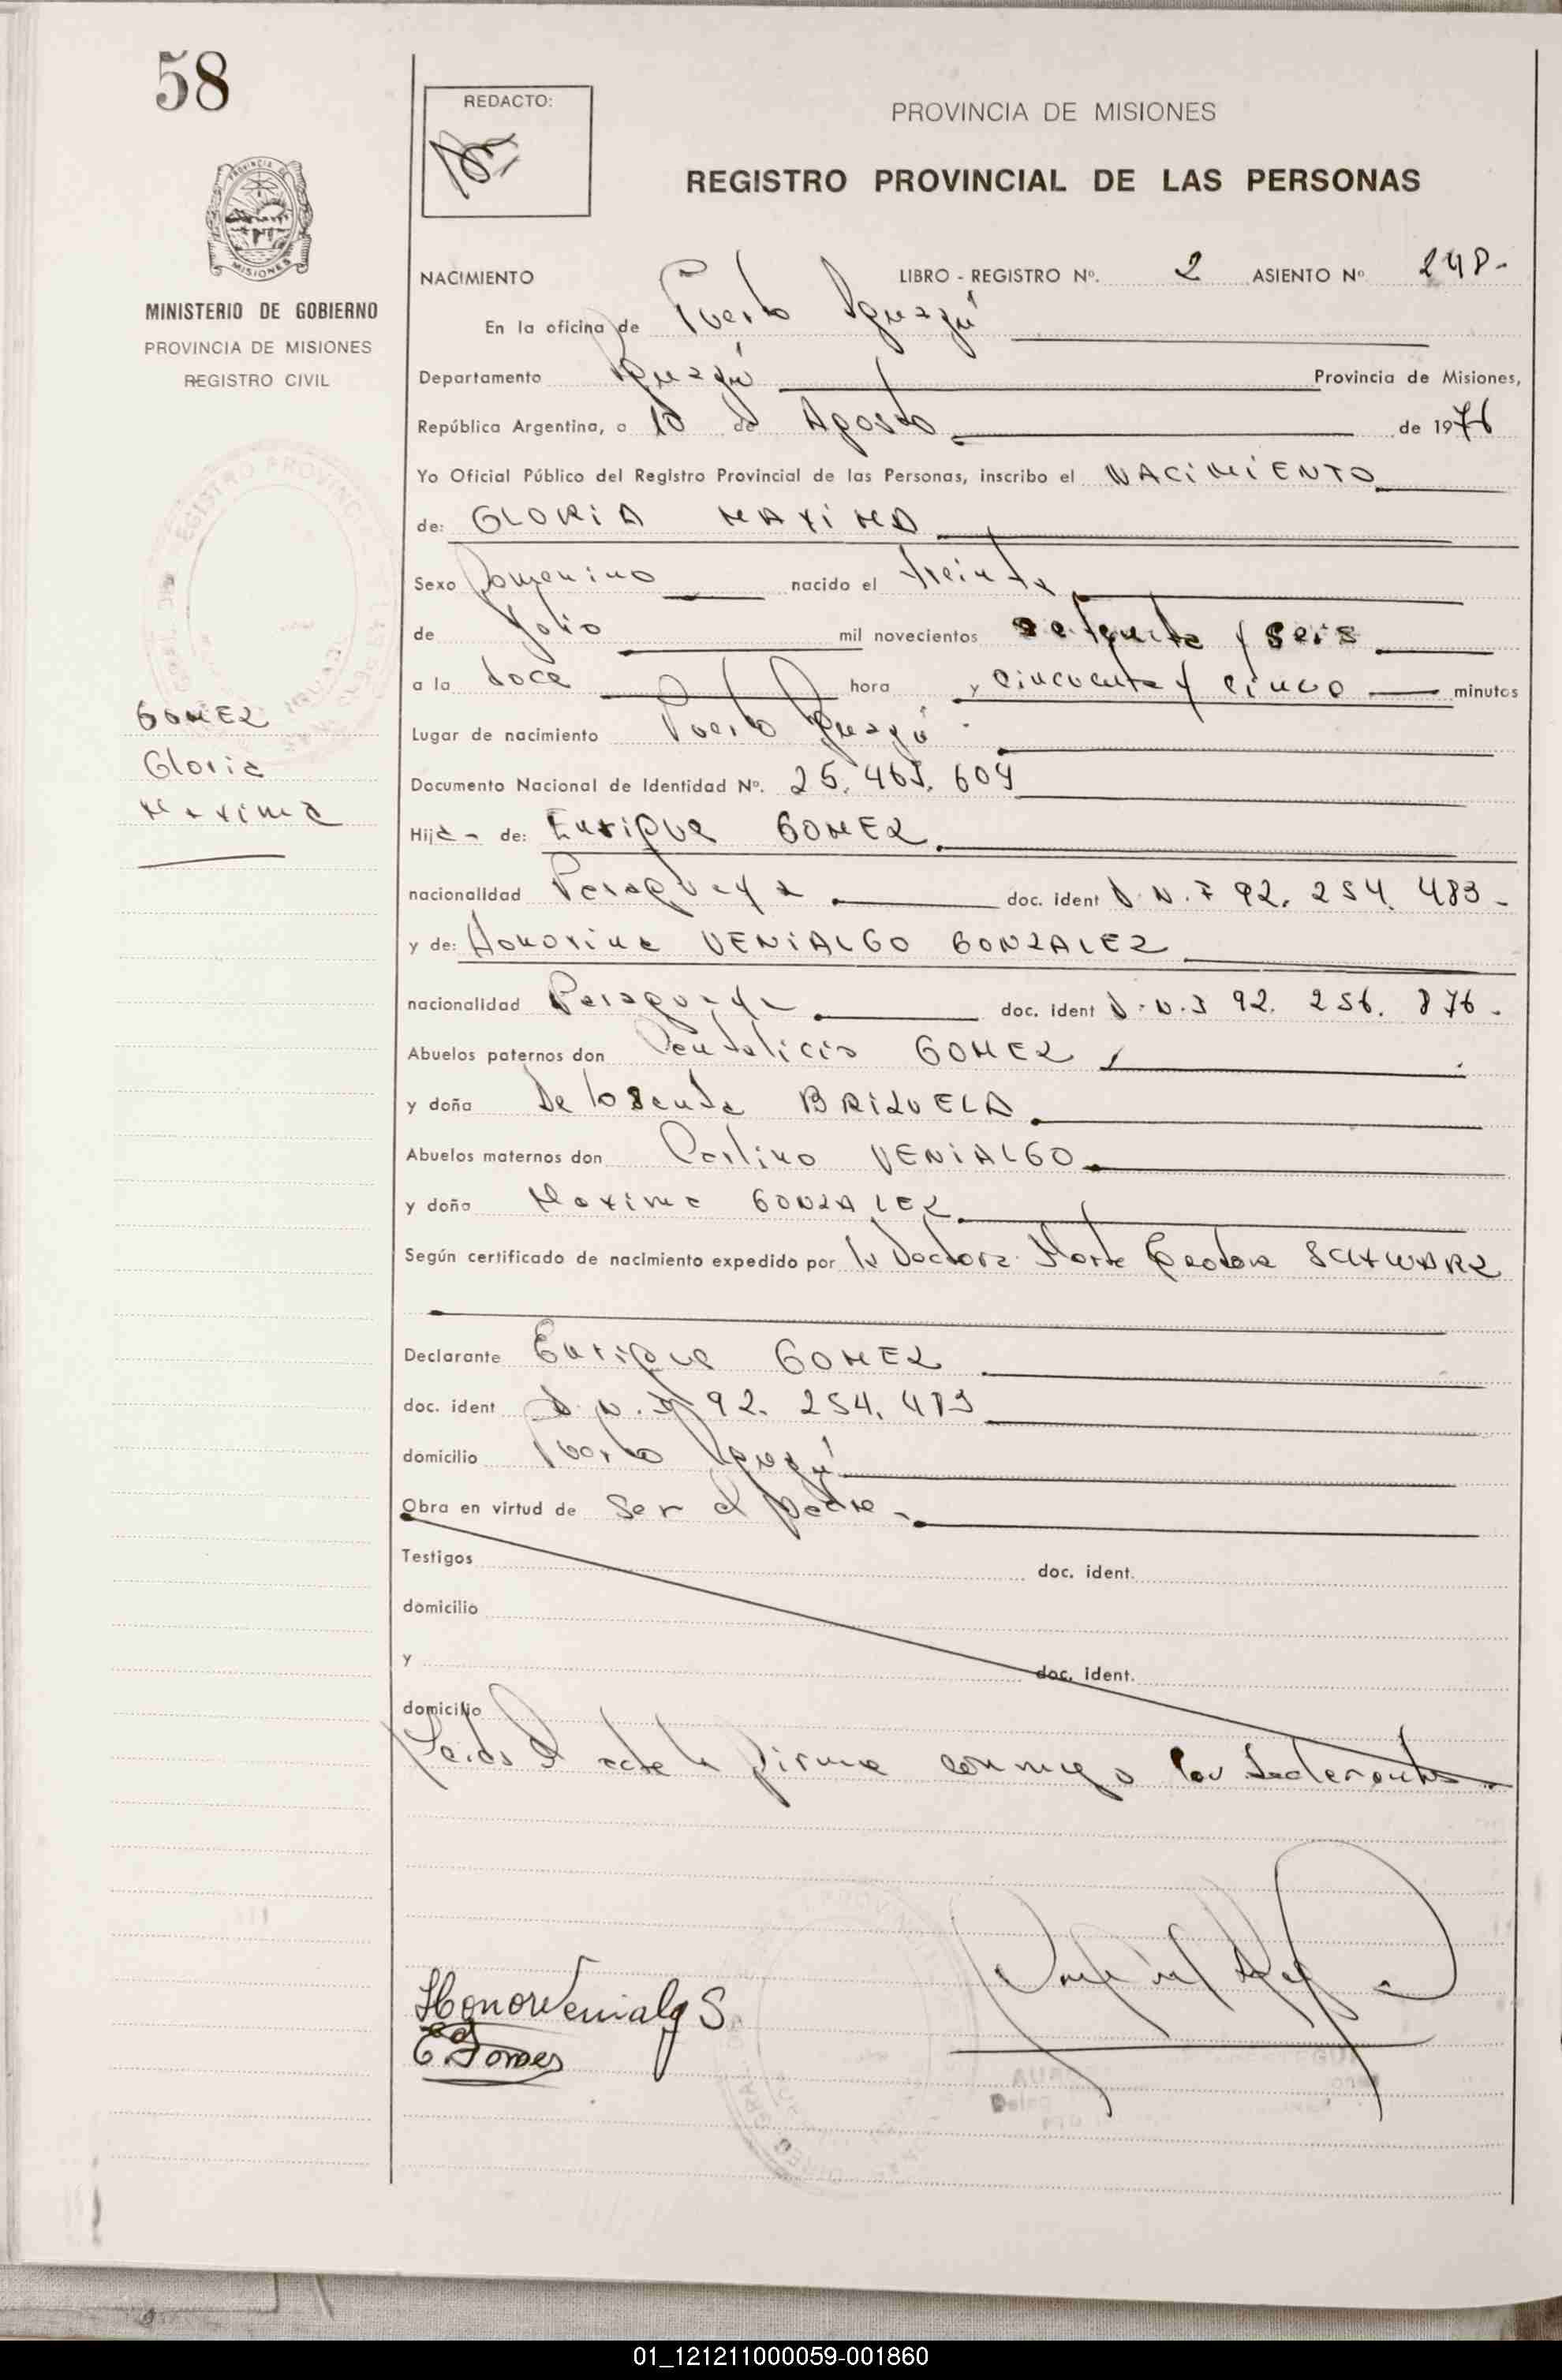 58
REDACTO:
PROVINCIA DE MISIONES
REGISTRO PROVINCIAL DE LAS PERSONAS
MISIONES
MINISTERIO DE GOBIERNO
PROVINCIA DE MISIONES
REGISTRO CIVIL
NACIMIENTO LIBRO - REGISTRO Nº. 2 ASIENTO Nº 248-
En la oficina de Puerto Iguazú
Departamento Iguazú Provincia de Misiones,
República Argentina, a 10 de Agosto de 1976
Yo Oficial Público del Registro Provincial de las Personas, inscribo el NACIMIENTO
de: GLORIA MAXIMA
Sexo Femenino nacido el treinta
de Julio mil novecientos setenta y seis
a la doce hora y cincuenta y cinco minutos
Lugar de nacimiento Puerto Iguazú
Documento Nacional de Identidad Nº. 25.465.604
GOMEZ
Gloria
Maxima
Hija - de: Enrique GOMEZ
nacionalidad Paraguaya doc. ident D.N.I 92.254.483-
y de: Honorina VENIALGO GONZALEZ
nacionalidad Paraguaya doc. ident D.N.I 92.256.876-
Abuelos paternos don Pentalicio GOMEZ
y doña BRIZUELA
Abuelos maternos don VENIALGO
y doña Maxima GONZALEZ
Según certificado de nacimiento expedido por la Doctora Marta SCHWARZ
Declarante Enrique GOMEZ
doc. ident D.N.I 92.254.483
domicilio Puerto Iguazú
Obra en virtud de ser el padre-
Testigos doc. ident.
domicilio
y doc. ident.
domicilio
Leida el acta la firma conmigo los declarantes
Honor Venialgo S
E Gomez
01_121211000059-001860